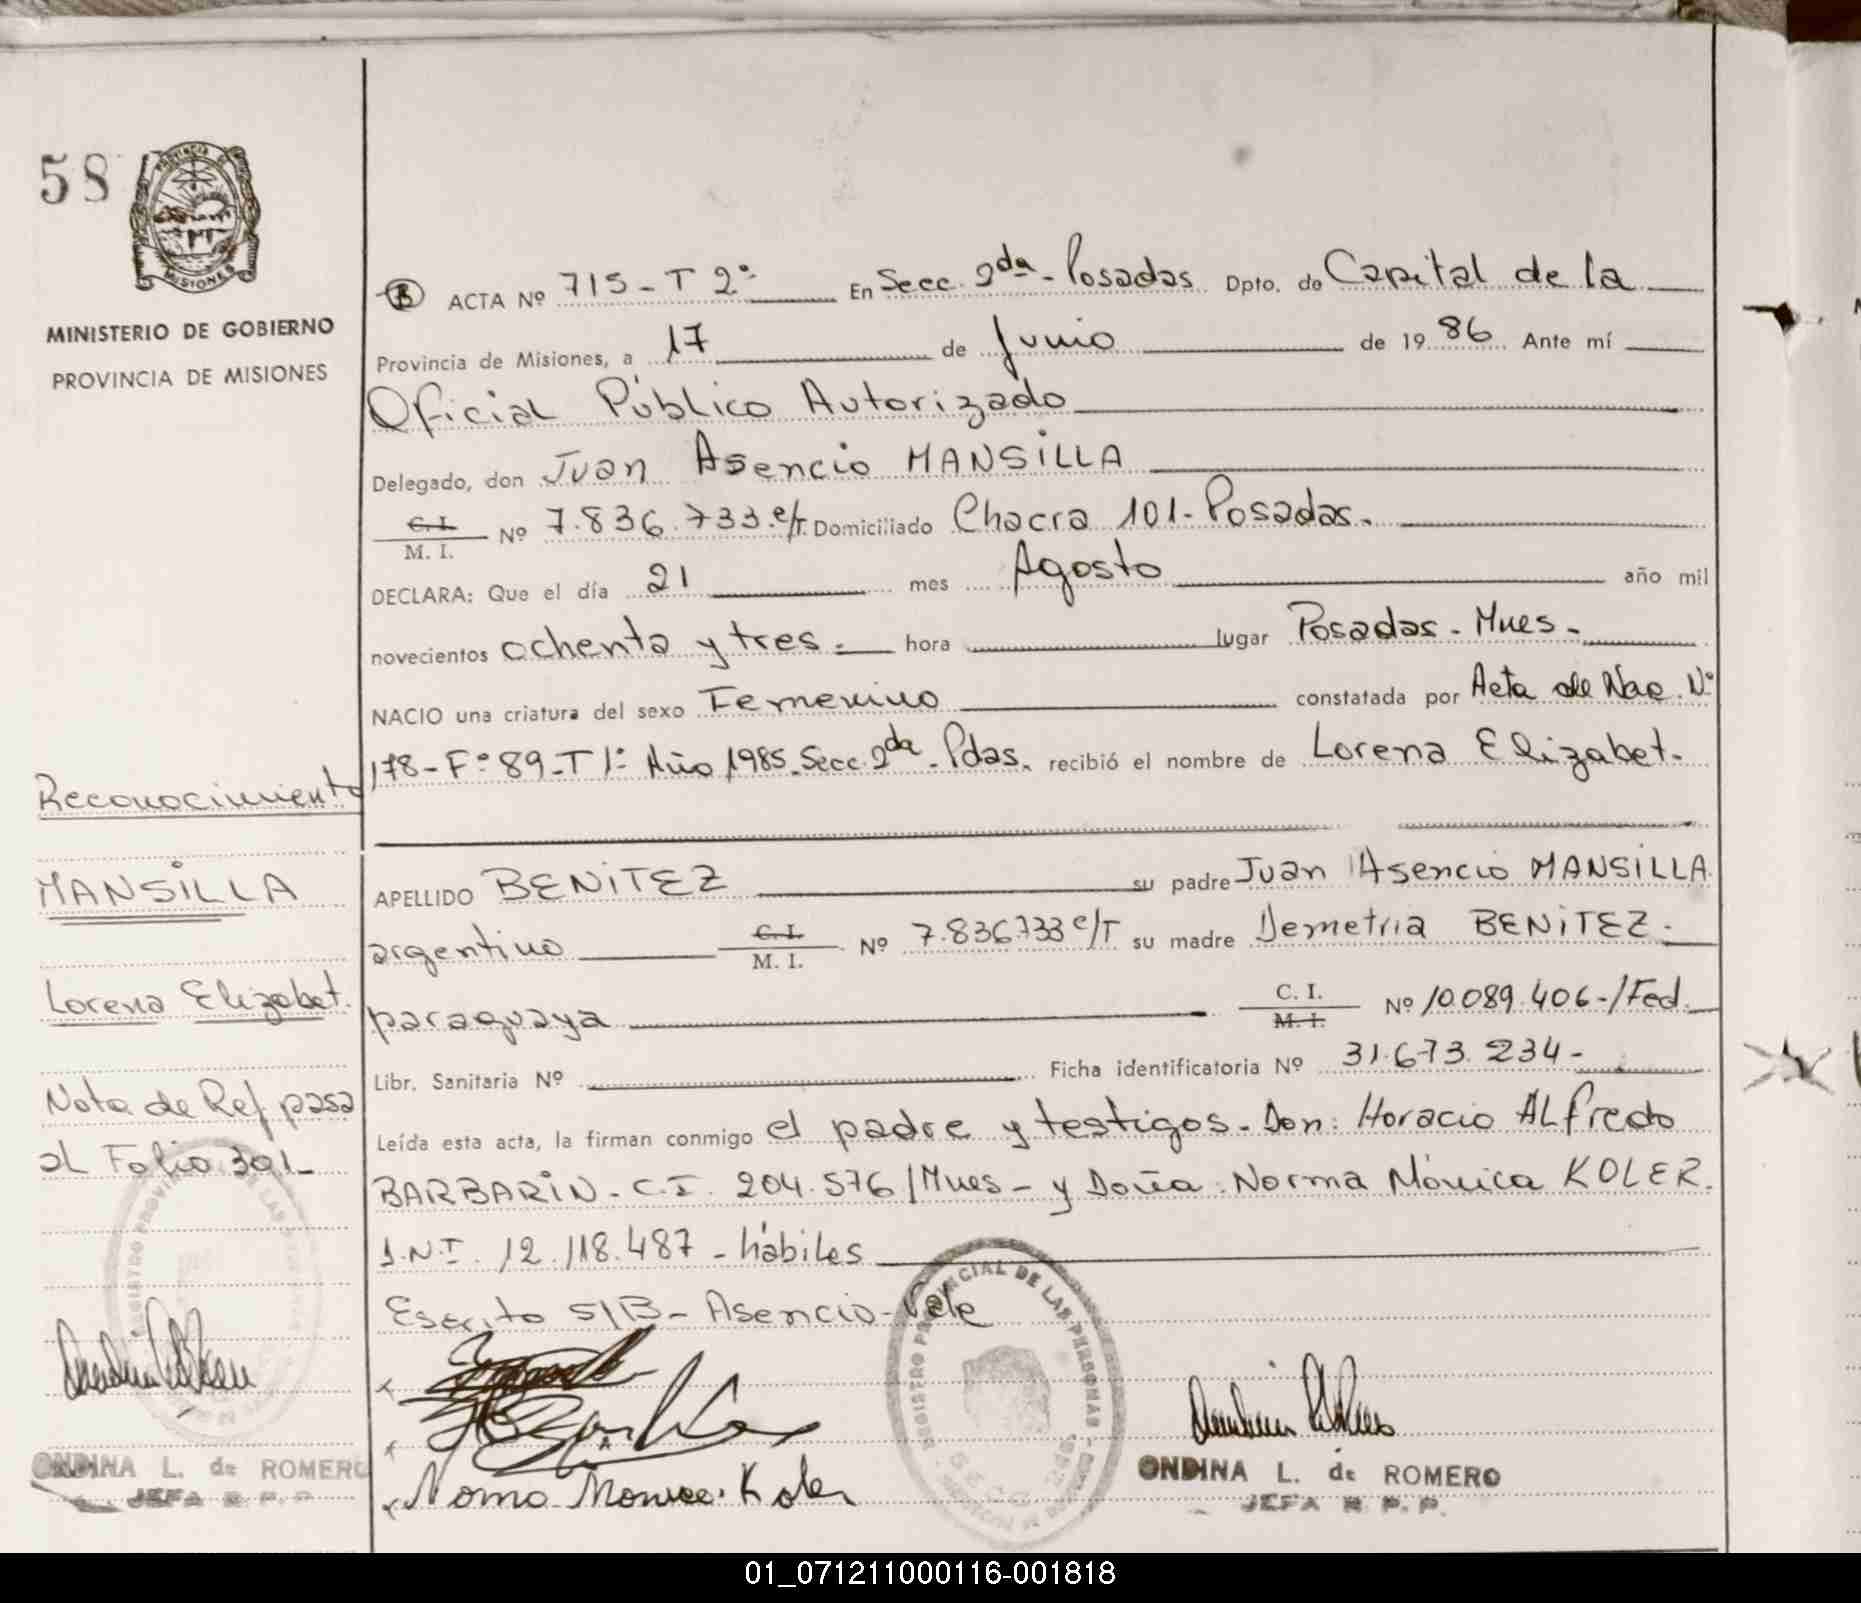 58
PROVINCIA DE
MISIONES
MINISTERIO DE GOBIERNO
PROVINCIA DE MISIONES
B ACTA Nº 715-T 2º En Secc. 2da - Posadas Dpto. de Capital de la
Provincia de Misiones, a 17 de Junio de 1986 Ante mí
Oficial Público Autorizado
Delegado, don Juan Asencio MANSILLA
C. I.
M. I. Nº 7.836.733.e/T. Domiciliado Chacra 101-Posadas.
DECLARA: Que el día 21 mes Agosto año mil
novecientos ochenta y tres.- hora lugar Posadas - Mnes -
NACIO una criatura del sexo Femenino constatada por Acta de Nac. Nº
178-Fº 89-T 1º Año 1985. Secc. 2da - Pdas. recibió el nombre de Lorena Elizabet.-
APELLIDO BENITEZ su padre Juan Asencio MANSILLA
argentino C. I.
M. I. Nº 7.836.733 e/T su madre Demetria BENITEZ.-
paraguaya C. I.
M. I. Nº 10.089.406-/Fed.
Libr. Sanitaria Nº Ficha identificatoria Nº 31.673.234-
Leída esta acta, la firman conmigo el padre y testigos. Don: Horacio ALfredo
BARBARIN - C.I. 204.576/Mnes - y Doña: Norma Mónica KOLER.
D.N.I. 12.118.487 - hábiles
Escrito S/B - Asencio - Vale
Reconocimiento
MANSILLA
Lorena Elizabet.
Nota de Ref pasa
al Folio 391-
Norma Monica Koler
REGISTRO PROVINCIAL DE LAS PERSONAS
ONDINA L. de ROMERO
JEFA R. P. P.
ONDINA L. de ROMERO
JEFA R. P. P.
01_071211000116-001818